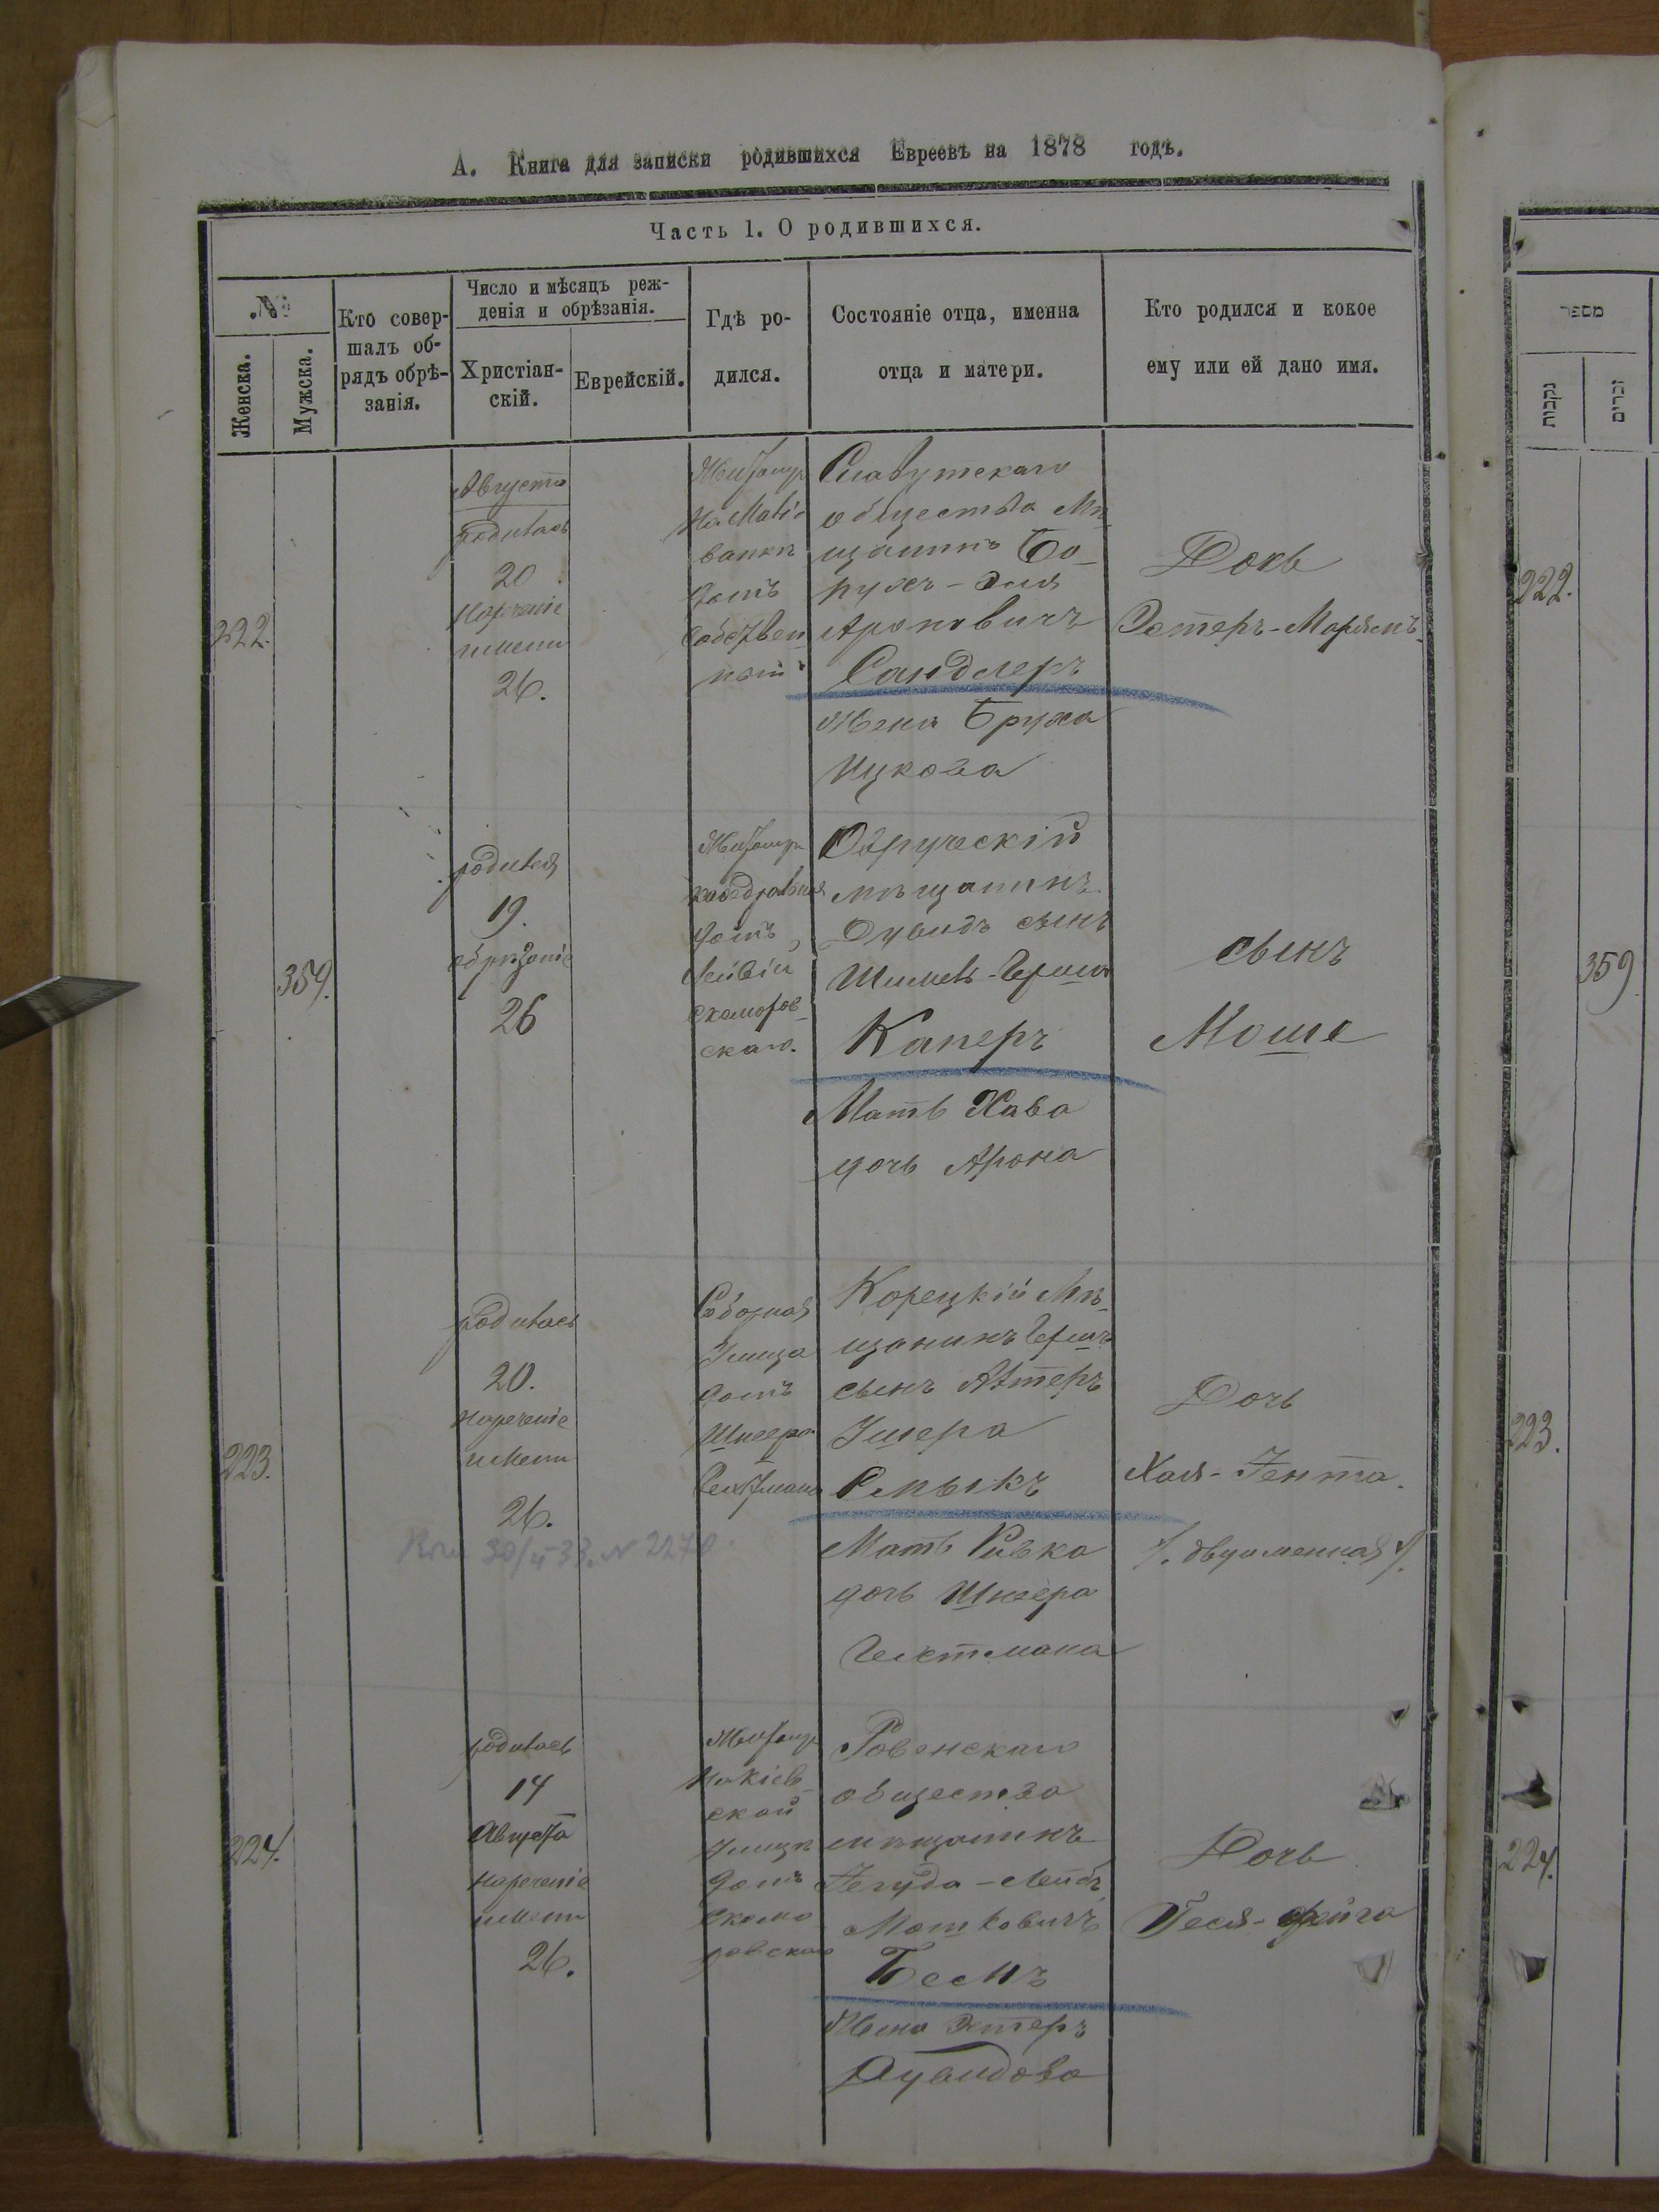 А. Книга для записки родившихся Евреевъ на 1878 годъ.
Часть 1. О родившихся.
№
Женска.
Мужска.
Кто совер-
шалъ об-
рядъ обрѣ-
занія.
Число и мѣсяцъ реж-
денія и обрѣзанія.
Христіан-
скій.
Еврейскій.
Гдѣ ро-
дился.
Состояніе отца, именна
отца и матери.
Кто родился и кокое
ему или ей дано имя.
222.
Августа
родилась
20
Нареченіе
имени
26.
Житомир
На Малё
ванкѣ
домъ
собствен
ный
Славутскаго
общества Мѣ
щанинъ Бо-
рухъ-Эля
Ароновичъ
Сандлеръ
Жена Бруха
Ицкова
Дочь
Эстеръ-Марямъ
359.
родился
19.
обрѣзаніе
26
Житомир
домъ
Скоморов-
скаго.
Овручскій
мѣщанинъ
Дувидъ сынъ
Шмиль-Герша
Каперъ
Мать Хава
дочь Арона
сынъ
Моше
223.
родилась
20.
Нареченіе
имени
26.
Соборная
Улица
домъ
Шнеера
Гехтмана
Корецкій Мѣ-
щанинъ Гершъ
сынъ Алтеръ
Ушера
Смыкъ
Мать Ривка
дочь Шнеера
Гехтмана
Дочь
Хая-Гента.
/. двуименная /.
224.
родилась
14
Августа
Нареченіе
имени
26.
Житомир
На Кіев
ской
Улицѣ
домъ
Скомо
ровскаго
Ровенскаго
общества
мѣщанинъ
Іегуда-Лейбъ
Мошковичъ
Бемъ
Жена Эстеръ
Дувидова
Дочь
Песя-Фейга
מספר
נקבות
זכרים
222.
359
223.
224.